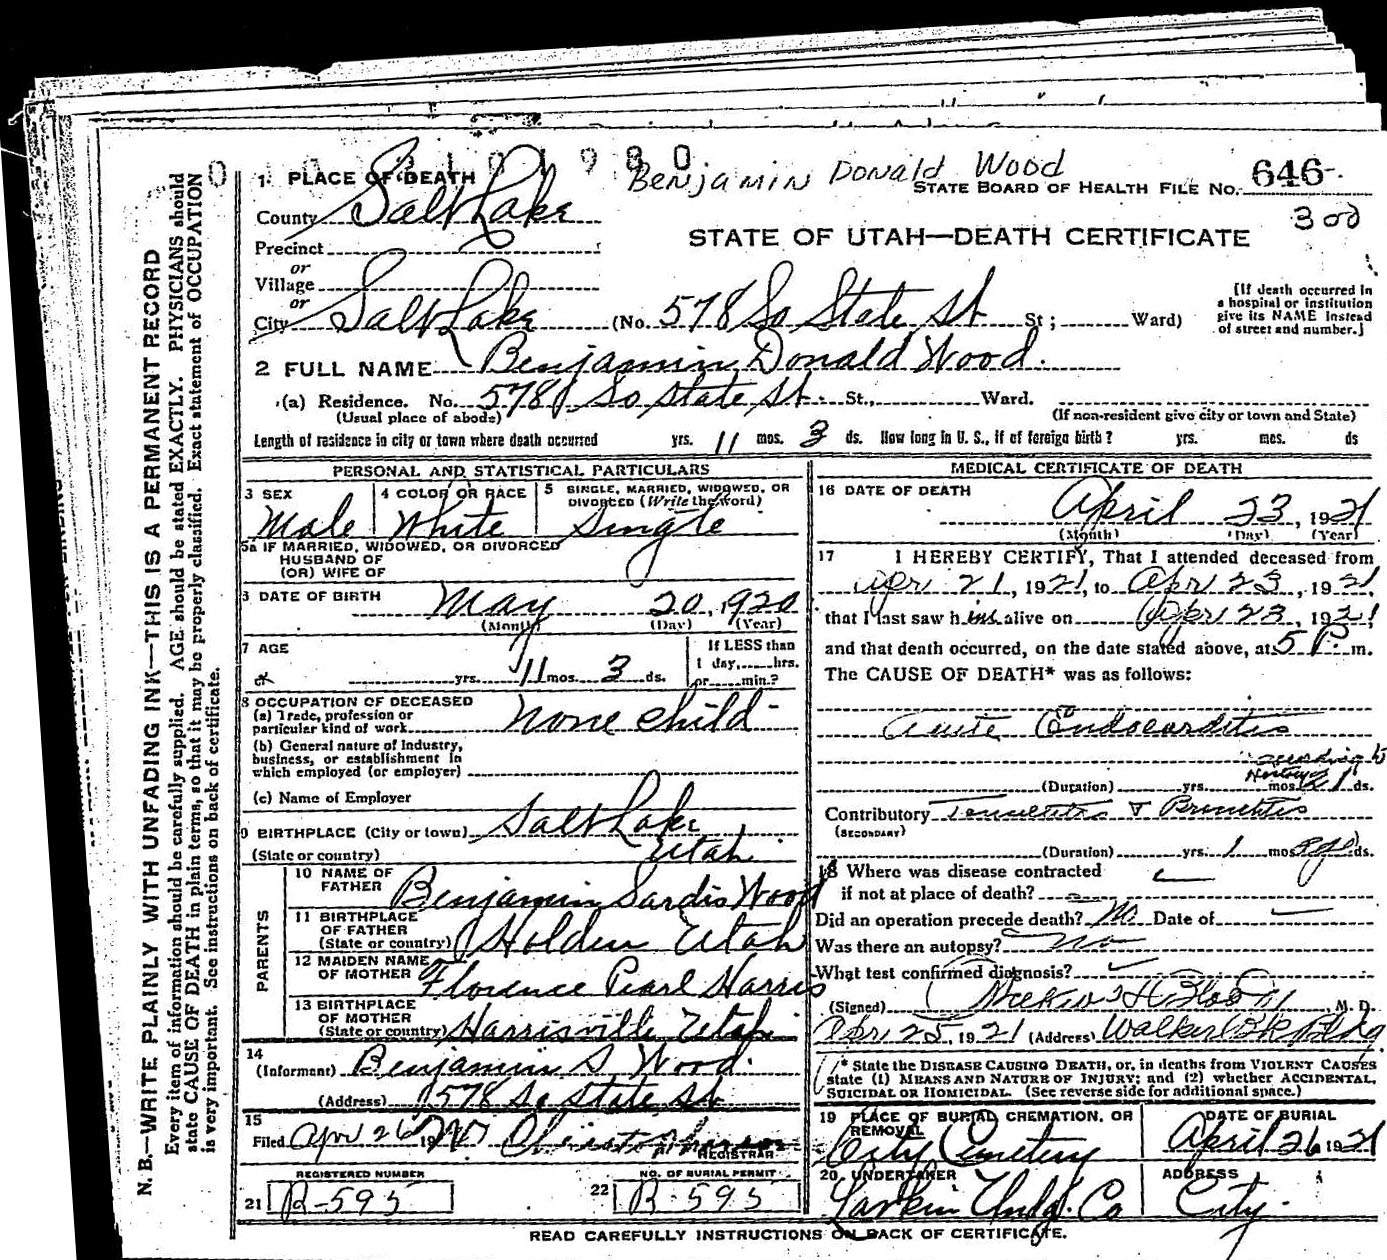 1 PLACE OF DEATH
Benjamin Donald Wood
STATE BOARD OF HEALTH FILE NO. 646
300
County Salt Lake
STATE OF UTAH—DEATH CERTIFICATE
Precinct
or
Village
or
City Salt Lake (No. 578 So State St St; Ward)
[If death occurred in
a hospital or institution
give its NAME instead
of street and number.]
2 FULL NAME Benjamin Donald Wood.
(a) Residence. No. 578 So State St. St., Ward.
(Usual place of abode) (If non-resident give city or town and State)
Length of residence in city or town where death occurred yrs. 11 mos. 3 ds. How long in U. S., if of foreign birth? yrs. mos. ds
PERSONAL AND STATISTICAL PARTICULARS
3 SEX
Male
4 COLOR OR RACE
White
5 SINGLE, MARRIED, WIDOWED, OR
DIVORCED (Write the word)
Single
5a IF MARRIED, WIDOWED, OR DIVORCED
HUSBAND OF
(OR) WIFE OF
6 DATE OF BIRTH
May 20, 1920
(Month) (Day) (Year)
7 AGE
yrs. 11 mos. 3 ds.
If LESS than
1 day, hrs.
or min.?
8 OCCUPATION OF DECEASED
(a) Trade, profession or
particular kind of work none child
(b) General nature of Industry,
business, or establishment in
which employed (or employer)
(c) Name of Employer
9 BIRTHPLACE (City or town) Salt Lake
(State or country) Utah
PARENTS
10 NAME OF
FATHER Benjamin Sardis Wood
11 BIRTHPLACE
OF FATHER
(State or country) Holden Utah
12 MAIDEN NAME
OF MOTHER Florence Pearl Harris
13 BIRTHPLACE
OF MOTHER
(State or country) Harrisville Utah
14
(Informant) Benjamin S. Wood.
(Address) 578 So State St
15
Filed Apr 26 19
REGISTRAR
REGISTERED NUMBER
21 R-595
NO. OF BURIAL PERMIT
22 R-595
MEDICAL CERTIFICATE OF DEATH
16 DATE OF DEATH
April 23, 1921
(Month) (Day) (Year)
17 I HEREBY CERTIFY, That I attended deceased from
Apr 21, 1921, to Apr 23, 1921,
that I last saw him alive on Apr 23, 1921
and that death occurred, on the date stated above, at 5 P. m.
The CAUSE OF DEATH* was as follows:
Acute Endocarditis
according to
History of
(Duration) yrs. mos. 21 ds.
Contributory Tonsilitis & Bronchitis
(SECONDARY)
(Duration) yrs. 1 mos. ago ds.
18 Where was disease contracted
if not at place of death?
Did an operation precede death? No Date of
Was there an autopsy? no
What test confirmed diagnosis?
(Signed) M. D.
Apr 25, 1921 (Address) Walker Bk Bldg
* State the DISEASE CAUSING DEATH, or, in deaths from VIOLENT CAUSES
state (1) MEANS AND NATURE OF INJURY; and (2) whether ACCIDENTAL,
SUICIDAL OR HOMICIDAL. (See reverse side for additional space.)
19 PLACE OF BURIAL CREMATION, OR
REMOVAL
City Cemetery
DATE OF BURIAL
April 26 1921
20 UNDERTAKER
Larkin Undg. Co
ADDRESS
City.
READ CAREFULLY INSTRUCTIONS ON BACK OF CERTIFICATE.
N. B.—WRITE PLAINLY WITH UNFADING INK—THIS IS A PERMANENT RECORD
Every item of information should be carefully supplied. AGE should be stated EXACTLY. PHYSICIANS should
state CAUSE OF DEATH in plain terms, so that it may be properly classified. Exact statement of OCCUPATION
is very important. See instructions on back of certificate.